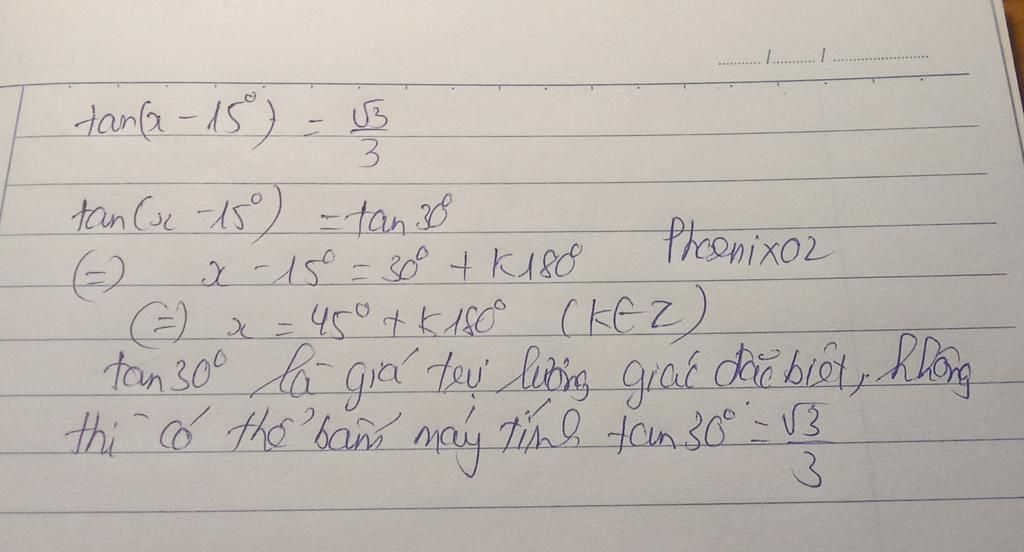 ........../........../....................
tan(x - 15°) = √3/3
tan(x - 15°) = tan 30°
(=) x - 15° = 30° + K180° Phoenix02
(=) x = 45° + K180° (K∈Z)
tan 30° là giá trị lượng giác đặc biệt, không
thì có thể bấm máy tính tan 30° = √3/3